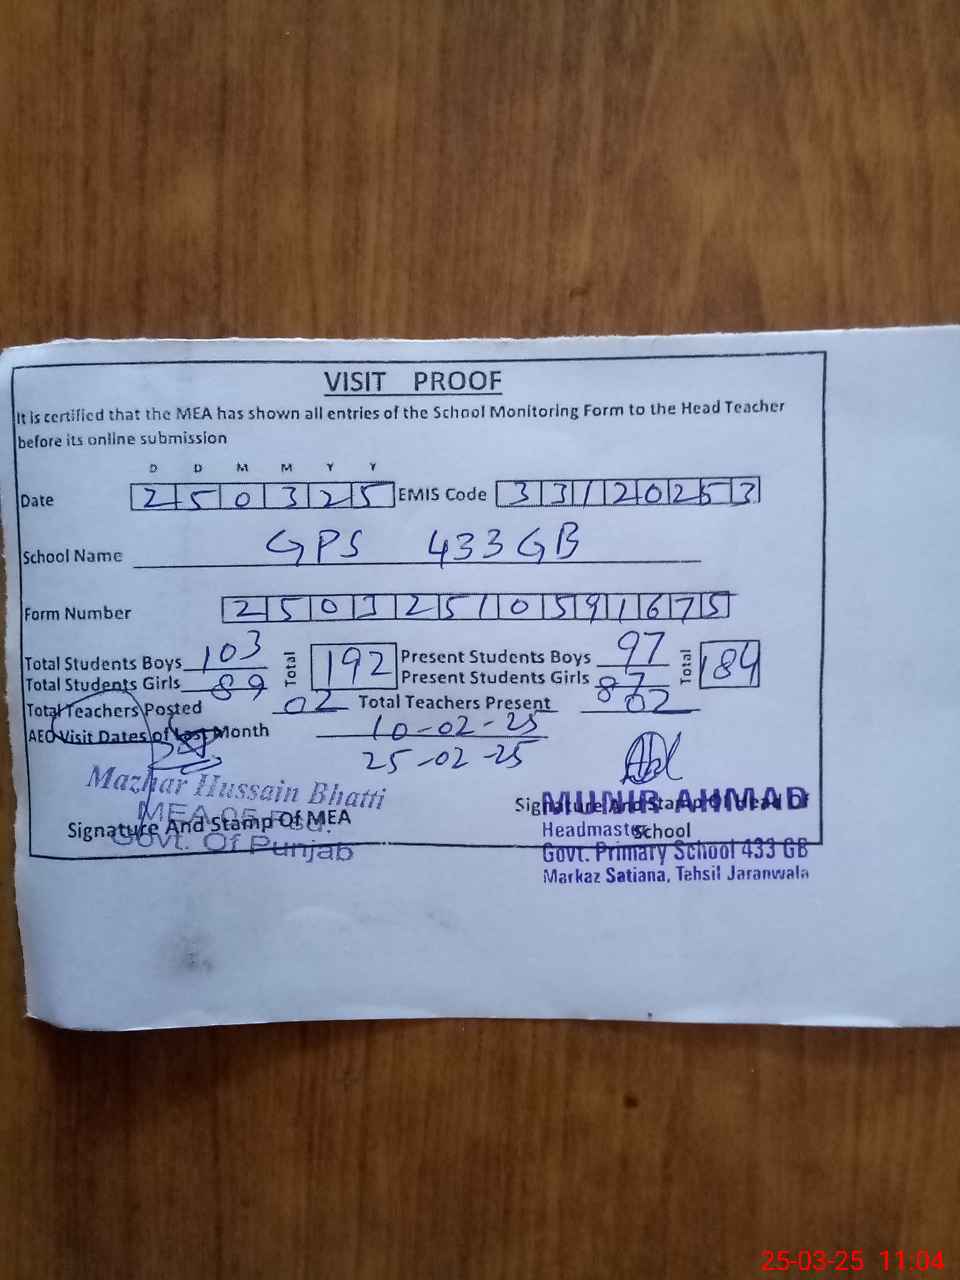 VISIT PROOF
It is certified that the MEA has shown all entries of the School Monitoring Form to the Head Teacher
before its online submission
D D M M Y Y
Date 250325 EMIS Code 33120253
School Name GPS 433 GB
Form Number 25032510591675
Total Students Boys 103 Total 192 Present Students Boys 97 Total 184
Total Students Girls 89 Present Students Girls 87
Total Teachers Posted 02 Total Teachers Present 02
AEO Visit Dates of Last Month 10-02-25
25-02-25
Mazhar Hussain Bhatti
MEA 05 Fsd.
Signature And Stamp Of MEA
Govt. Of Punjab
Signature And Stamp Of Head Of
School
MUNIR AHMAD
Headmaster
Govt. Primary School 433 GB
Markaz Satiana, Tehsil Jaranwala
25-03-25 11:04